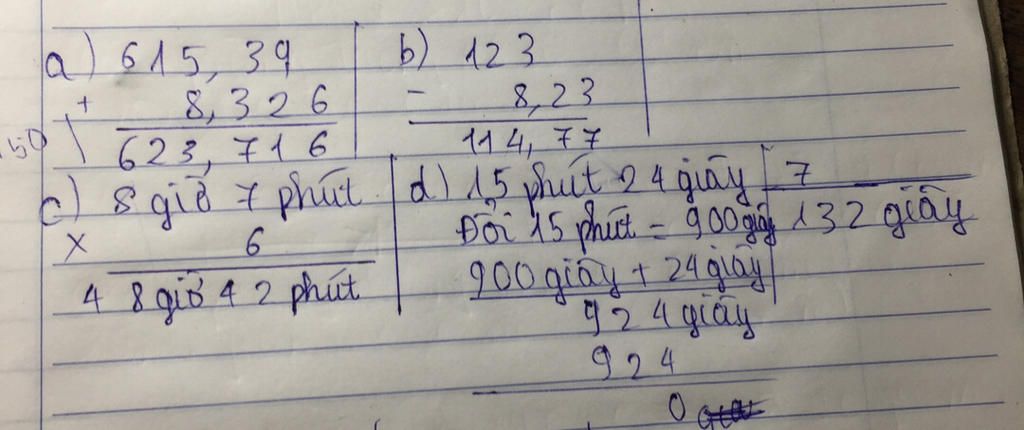 a) 615,39
+ 8,326
623,716
b) 123
- 8,23
114,77
c) 8 giờ 7 phút
× 6
48 giờ 42 phút
d) 15 phút 24 giây 7
Đổi 15 phút = 900 giây 132 giây
900 giây + 24 giây
924 giây
924
0